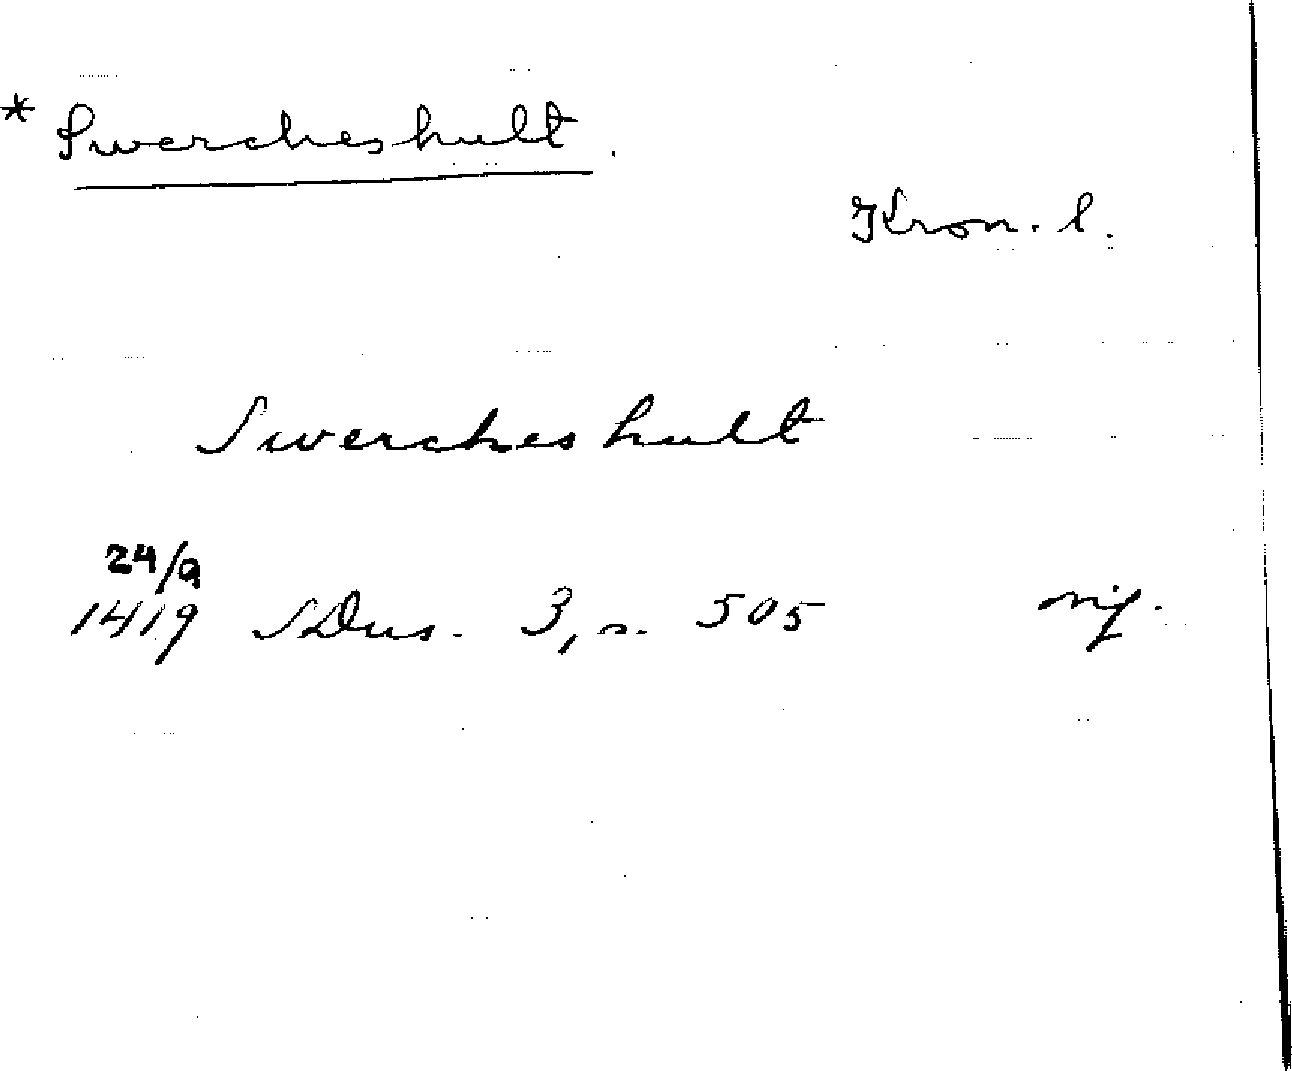 * Swercheshult.
Kron. l.
Swercheshult
24/9
1419 SDns. 3, s. 505 orig.